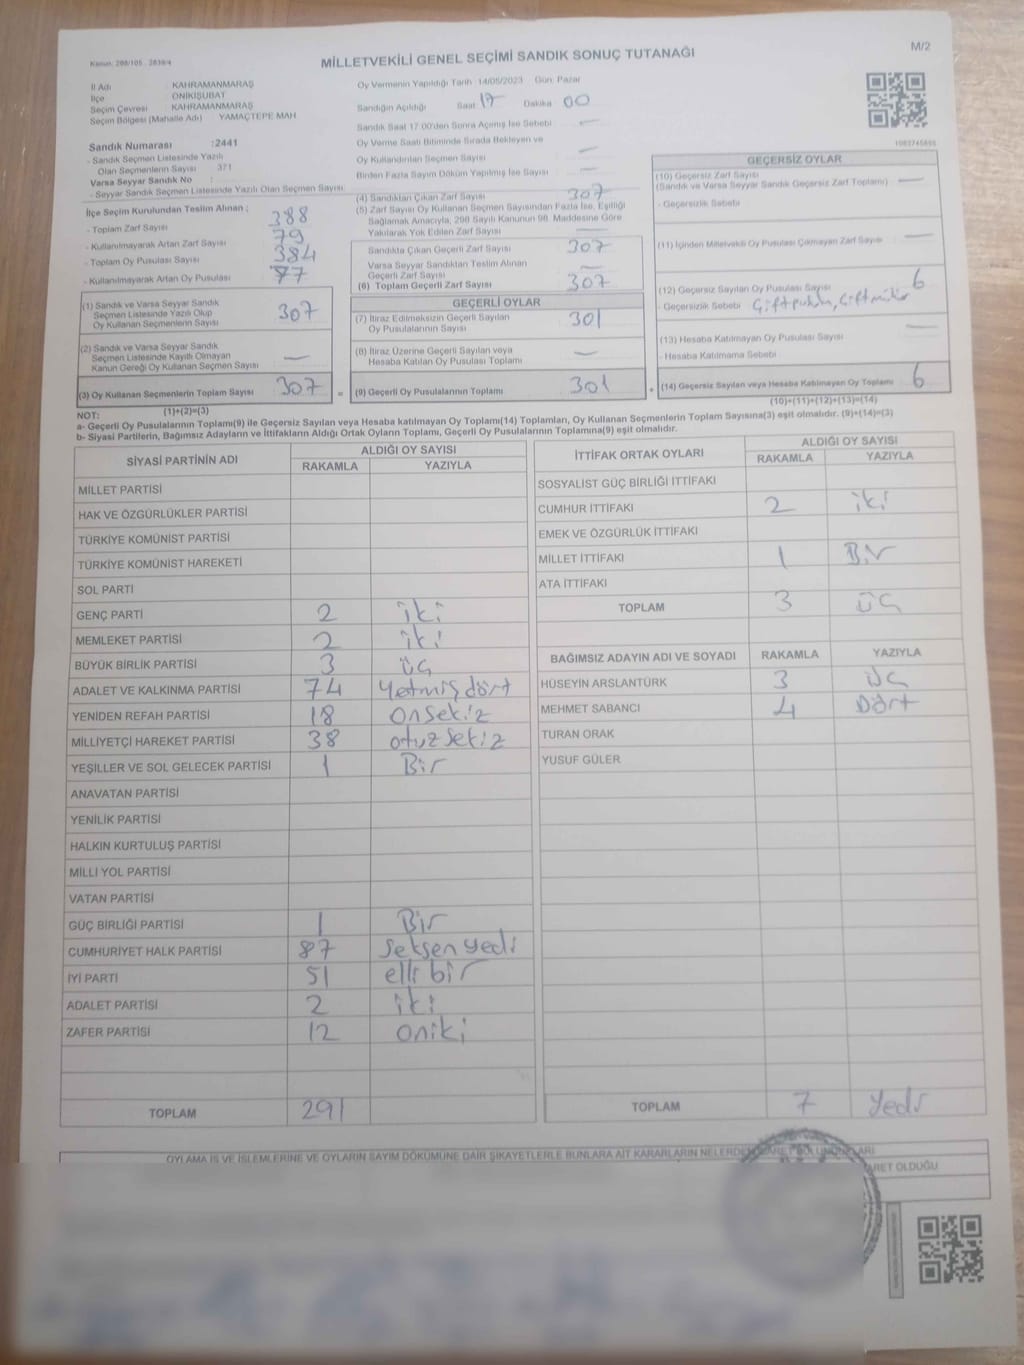 Kanun: 298/105 . 2839/4
M/2
MİLLETVEKİLİ GENEL SEÇİMİ SANDIK SONUÇ TUTANAĞI
İl Adı : KAHRAMANMARAŞ
İlçe : ONİKİŞUBAT
Seçim Çevresi : KAHRAMANMARAŞ
Seçim Bölgesi (Mahalle Adı) : YAMAÇTEPE MAH
Sandık Numarası :2441
- Sandık Seçmen Listesinde Yazılı
Olan Seçmenlerin Sayısı : 371
Varsa Seyyar Sandık No :
- Seyyar Sandık Seçmen Listesinde Yazılı Olan Seçmen Sayısı:
Oy Vermenin Yapıldığı Tarih :14/05/2023 Gün: Pazar
Sandığın Açıldığı Saat 17 Dakika 00
Sandık Saat 17.00'den Sonra Açılmış İse Sebebi : —
Oy Verme Saati Bitiminde Sırada Bekleyen ve
Oy Kullandırılan Seçmen Sayısı : —
Birden Fazla Sayım Döküm Yapılmış İse Sayısı : —
İlçe Seçim Kurulundan Teslim Alınan ;
- Toplam Zarf Sayısı : 388
- Kullanılmayarak Artan Zarf Sayısı : 79
- Toplam Oy Pusulası Sayısı : 384
- Kullanılmayarak Artan Oy Pusulası : 77
(1) Sandık ve Varsa Seyyar Sandık
Seçmen Listesinde Yazılı Olup
Oy Kullanan Seçmenlerin Sayısı : 307
(2) Sandık ve Varsa Seyyar Sandık
Seçmen Listesinde Kayıtlı Olmayan
Kanun Gereği Oy Kullanan Seçmen Sayısı : —
(3) Oy Kullanan Seçmenlerin Toplam Sayısı : 307 =
(1)+(2)=(3)
(4) Sandıktan Çıkan Zarf Sayısı : 307
(5) Zarf Sayısı Oy Kullanan Seçmen Sayısından Fazla İse, Eşitliği
Sağlamak Amacıyla, 298 Sayılı Kanunun 98. Maddesine Göre
Yakılarak Yok Edilen Zarf Sayısı : —
Sandıkta Çıkan Geçerli Zarf Sayısı : 307
Varsa Seyyar Sandıktan Teslim Alınan
Geçerli Zarf Sayısı : —
(6) Toplam Geçerli Zarf Sayısı : 307
GEÇERLİ OYLAR
(7) İtiraz Edilmeksizin Geçerli Sayılan
Oy Pusulalarının Sayısı : 301
(8) İtiraz Üzerine Geçerli Sayılan veya
Hesaba Katılan Oy Pusulası Toplamı : —
(9) Geçerli Oy Pusulalarının Toplamı : 301 +
GEÇERSİZ OYLAR
(10) Geçersiz Zarf Sayısı
(Sandık ve Varsa Seyyar Sandık Geçersiz Zarf Toplamı) : —
- Geçersizlik Sebebi :
(11) İçinden Milletvekili Oy Pusulası Çıkmayan Zarf Sayısı : —
(12) Geçersiz Sayılan Oy Pusulası Sayısı : 6
- Geçersizlik Sebebi :
(13) Hesaba Katılmayan Oy Pusulası Sayısı : —
- Hesaba Katılmama Sebebi :
(14) Geçersiz Sayılan veya Hesaba Katılmayan Oy Toplamı : 6
(10)+(11)+(12)+(13)=(14)
NOT:
a- Geçerli Oy Pusulalarının Toplamı(9) ile Geçersiz Sayılan veya Hesaba katılmayan Oy Toplamı(14) Toplamları, Oy Kullanan Seçmenlerin Toplam Sayısına(3) eşit olmalıdır. (9)+(14)=(3)
b- Siyasi Partilerin, Bağımsız Adayların ve İttifakların Aldığı Ortak Oyların Toplamı, Geçerli Oy Pusulalarının Toplamına(9) eşit olmalıdır.
SİYASİ PARTİNİN ADI ALDIĞI OY SAYISI
RAKAMLA YAZIYLA
MİLLET PARTİSİ
HAK VE ÖZGÜRLÜKLER PARTİSİ
TÜRKİYE KOMÜNİST PARTİSİ
TÜRKİYE KOMÜNİST HAREKETİ
SOL PARTİ
GENÇ PARTİ 2 iki
MEMLEKET PARTİSİ 2 iki
BÜYÜK BİRLİK PARTİSİ 3 üç
ADALET VE KALKINMA PARTİSİ 74 yetmiş dört
YENİDEN REFAH PARTİSİ 18 onsekiz
MİLLİYETÇİ HAREKET PARTİSİ 38 otuz sekiz
YEŞİLLER VE SOL GELECEK PARTİSİ 1 Bir
ANAVATAN PARTİSİ
YENİLİK PARTİSİ
HALKIN KURTULUŞ PARTİSİ
MİLLİ YOL PARTİSİ
VATAN PARTİSİ
GÜÇ BİRLİĞİ PARTİSİ 1 Bir
CUMHURİYET HALK PARTİSİ 87 seksen yedi
İYİ PARTİ 51 elli bir
ADALET PARTİSİ 2 iki
ZAFER PARTİSİ 12 oniki
TOPLAM 291
İTTİFAK ORTAK OYLARI ALDIĞI OY SAYISI
RAKAMLA YAZIYLA
SOSYALİST GÜÇ BİRLİĞİ İTTİFAKI
CUMHUR İTTİFAKI 2 iki
EMEK VE ÖZGÜRLÜK İTTİFAKI
MİLLET İTTİFAKI 1 Bir
ATA İTTİFAKI
TOPLAM 3 üç
BAĞIMSIZ ADAYIN ADI VE SOYADI RAKAMLA YAZIYLA
HÜSEYİN ARSLANTÜRK 3 üç
MEHMET SABANCI 4 Dört
TURAN ORAK
YUSUF GÜLER
TOPLAM 7 yedi
OYLAMA İŞ VE İŞLEMLERİNE VE OYLARIN SAYIM DÖKÜMÜNE DAİR ŞİKAYETLERLE BUNLARA AİT KARARLARIN NELERDEN
OLDUĞU